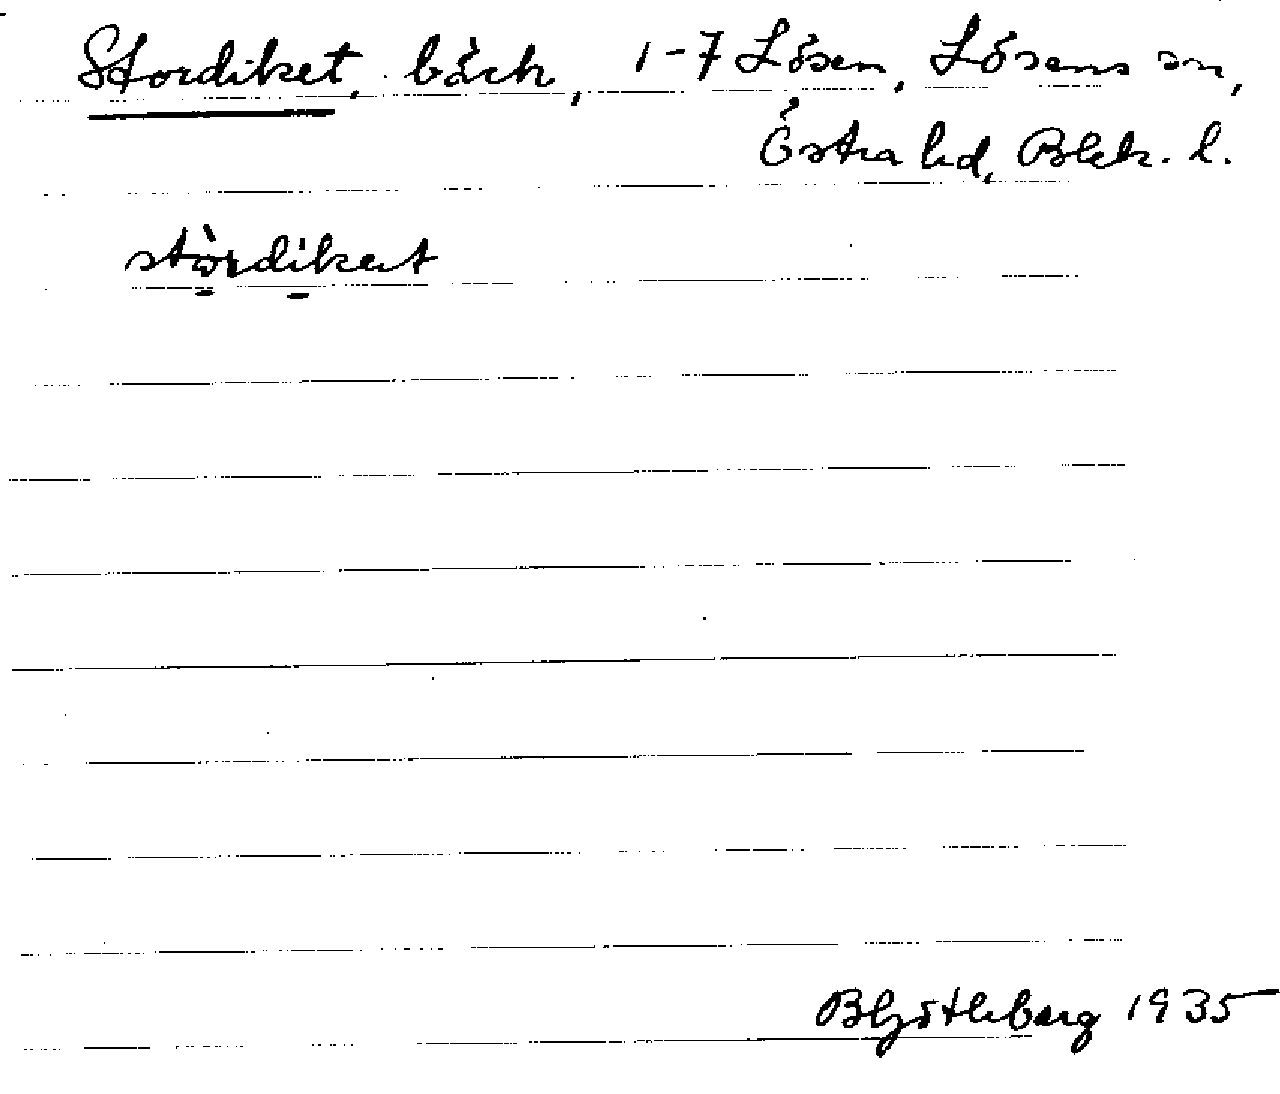 Stordiket, bäck, 1-7 Lösen, Lösens sn,
Östra hd, Blek. l.
stòrdikət
1935